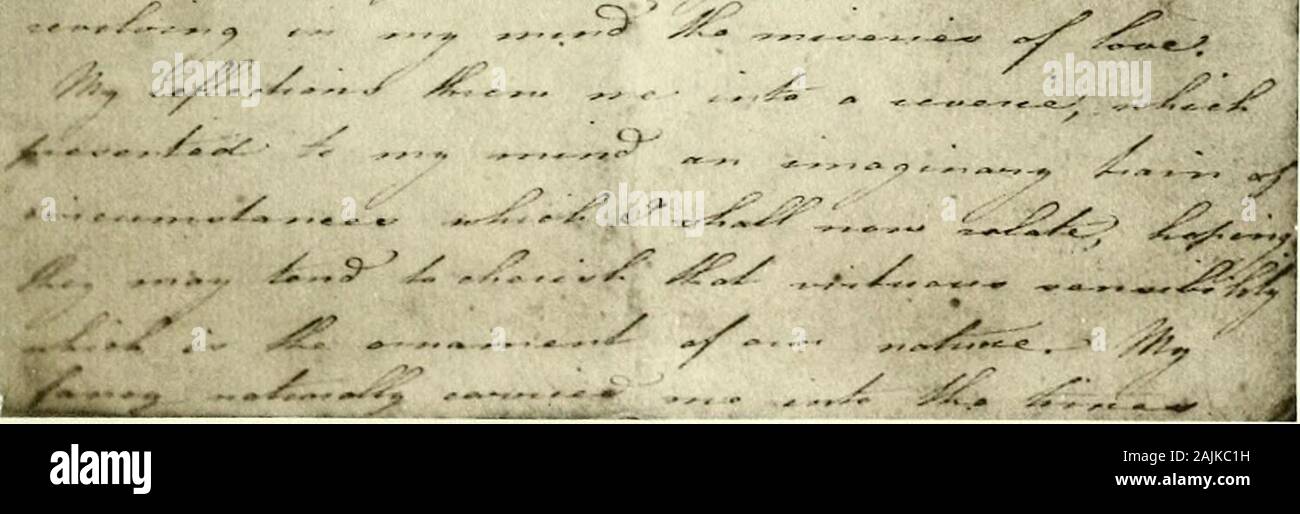 revolving in my mind the miseries of love.
My reflections threw me into a reverie, which
presented to my mind an imaginary train of
circumstances which I shall now relate, hoping
they may tend to cherish that virtuous sensibility
which is the ornament of our nature. My
fancy naturally carried me into the times
a
a
alamy
Image ID: 2AJKC1H
www.alamy.com